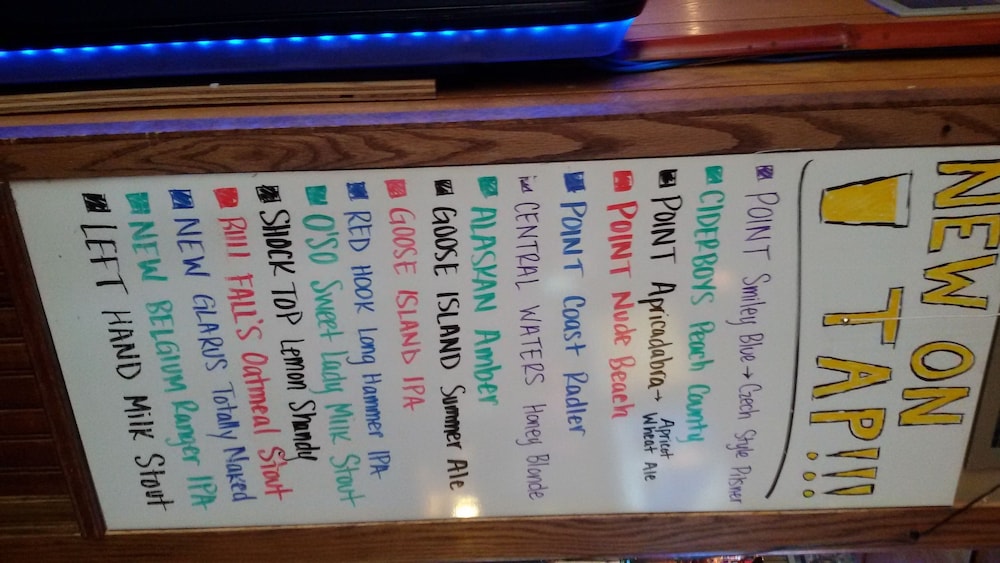 NEW ON
TAP!!!
POINT Smiley Blue → Czech Style Pilsner
CIDERBOYS Peach County
POINT Apricadabra → Apricot
Wheat Ale
POINT Nude Beach
POINT Coast Radler
CENTRAL WATERS Honey Blonde
ALASKAN Amber
GOOSE ISLAND Summer Ale
GOOSE ISLAND IPA
RED HOOK Long Hammer IPA
O'SO Sweet Lady Milk Stout
SHOCK TOP Lemon Shandy
Bill FALL'S Oatmeal Stout
NEW GLARUS Totally Naked
NEW BELGIUM Ranger IPA
LEFT HAND Milk Stout